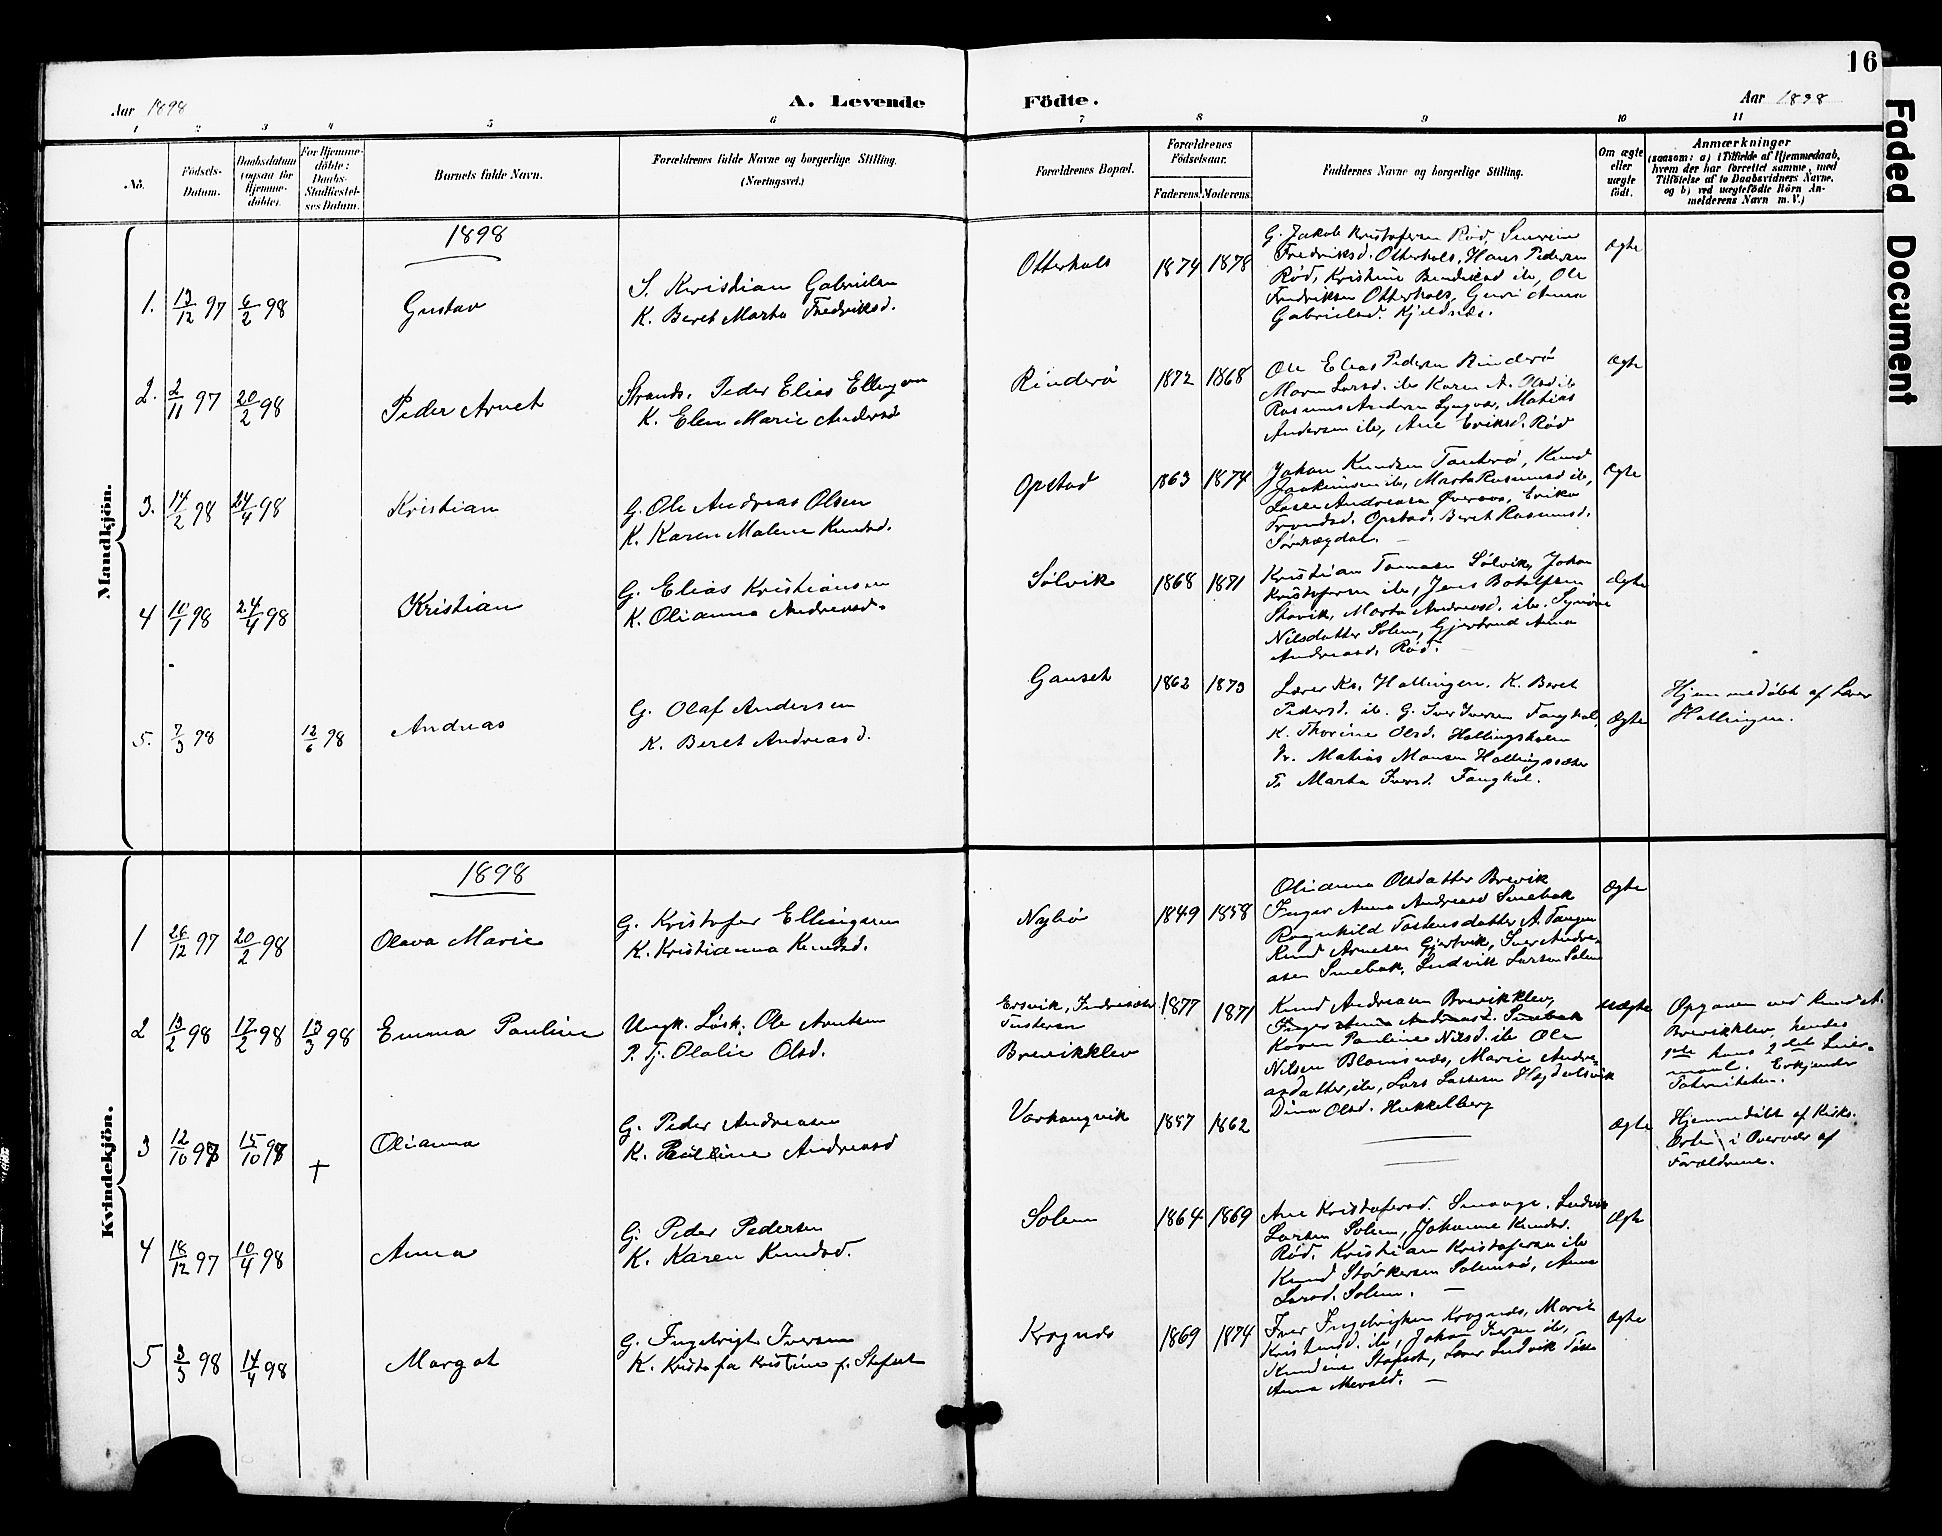 16
Aar 1898
A. Levende Födte.
Aar 1898
Faded Document
1 2 3 4 5 6 7 8 9 10 11
No.
Födsels-Datum.
Daabsdatum (ogsaa för Hjemme-döbte).
For Hjemme-döbte: Daabs-Stadfæstel-ses Datum.
Barnets fulde Navn.
Forældrenes fulde Navne og borgerlige Stilling.
(Næringsvei.)
Forældrenes Bopæl.
Forældrenes Födselsaar.
Faderens. Moderens.
Faddernes Navne og borgerlige Stilling.
Om ægte eller uægte födt.
Anmærkninger
(saasom: a) i Tilfælde af Hjemmedaab, hvem der har forrettet samme, med Tilföielse af to Daabsvidners Navne, og b) ved uægtefödte Börn An-melderens Navn m. V.)
Mandkjön.
1898
1. 13/12 97 6/2 98 Gustav
S. Kristian Gabrielsen
K. Beret Marta Fredriksd.
Otterhals 1874 1878
G. Jakob Kristofersen Rød,
Fredriksd. Otterhals, Hans Pedersen
Rød, Kristine Bendiksd ib, Ole
Fredriksen Otterhals, Guri Anna
Gabrielsd. Kjeldnæs.
Ægte
2. 2/11 97 20/2 98 Peder Arnet
Strands. Peder Elias Ellingsen
K. Elen Marie Andersd
Rinderø 1872 1868
Ole Elias Pedersen Rinderø
Maren Larsd. ib Karen A. Olsd ib
Rasmus Andersen Lyngvær, Matias
Andersen ib, Ane Eriksd. Rød
Ægte
3. 14/2 98 24/4 98 Kristian
G. Ole Andreas Olsen
K. Karen Malene Knudsd.
Opstad 1863 1874
Johan Knudsen, Knud
Joakimsen ib, Marta Rasmusd ib,
Lasse Andreasen Øveraas, Erika
Opstad. Beret Rasmusd.
Ægte
4 10/1 98 24/4 98 Kristian
G. Elias Kristiansen
K. Olianna Andreasd.
Sølvik 1868 1871
Kristian Tomasen Sølvik, Johan
Kristofersen ib, Jens Botolfsen
Skovik, Marta Andreasd. ib. Synøve
Nilsdatter Solem, Gjertrud Anna
Andreasd. Rød.
Ægte
5. 7/3 98 12/6 98 Andreas
G. Olaf Andersen
K. Beret Andreasd.
Gauset 1862 1873
Lærer Kr. Hallingen. K. Beret
Pedersd. ib. G. Iver Iversen Tanghol,
K. Thorine Olsd. Hallingsholm
Matias Monsen Hallingsæter
Marta Iversd. Tanghol.
Ægte
Hjemmedøbt af Lærer
Hallingen.
Kvindekjön.
1898
1 26/12 97 20/2 98 Olava Marie
G. Kristofer Ellingsen
K. Kristianna Knudsd.
Nybø 1849 1858
Olianna Olsdatter Brevik
Inger Anna Andreasd Smebak
Ragnhild Tostensdatter A. Tangen
Knud Arnesen Gjertvik, Iver Andre-
asen Smebak, Ludvik Larsen Solem
Ægte
2 13/2 98 17/2 98 13/3 98 Emma Pauline
Ungk. Løsk. Ole Arntsen
P. Tj. Olalie Olsd.
Ersvik, Indresæter
Tusteren
Brevikklev
1877 1871
Knud Andreasen Brevikklev,
Inger Anna Andreasd. Smebak
Karen Pauline Nilsd. ib Ole
Nilsen Blomsnæs, Marie Andre-
asdatter, ib, Lars Larsen Hegdalsvik
Dina Olsd. Hukkelberg
uægte
Opgaven ved Knud A.
Brevikklev, hendes
1ste hans 2det Leier-
maal. Erkjender
Paterniteten.
3 12/10 97 15/10 97 + Olianna
G. Peder Andreasen
K. Pauline Andreasd
Varhaugvik 1857 1862
Ægte
Hjemmedøbt af Kirks.
i Overvær af
Forældrene.
4 18/12 97 10/4 98 Anna
G. Peder Pedersen
K. Karen Knudsd.
Solem 1864 1869
Ane Kristofersd. Smaage. Ludvik
Larsen Solem, Johanne Knudsd.
Rød. Kristian Kristofersen ib
Knud Størkersen Solemsø, Anna
Larsd. Solem.
Ægte
5 3/3 98 14/4 98 Margot
G. Ingebrigt Iversen
K. Kristofa Kristine f. Stafset
Krognæs 1869 1874
Iver Ingebrigtsen Krognæs, Marit
Kristensd. ib, Johan Iversen ib,
Knudine Stafset, Lærer Ludvik
Anna
Ægte